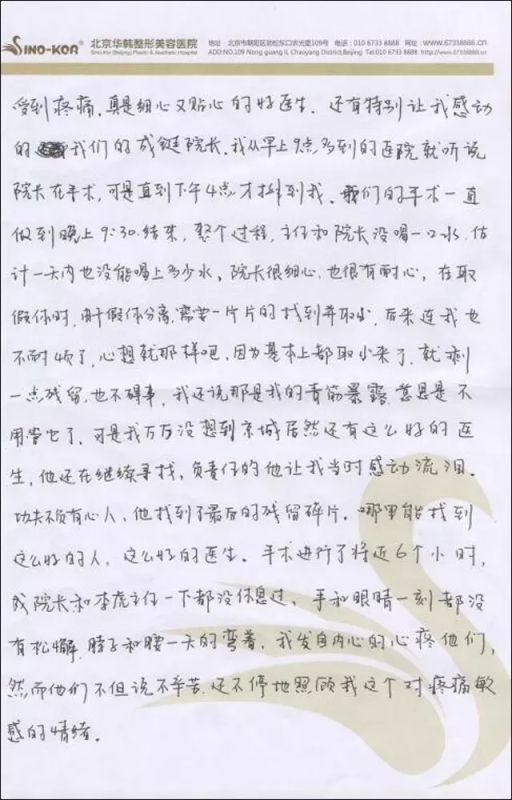 SINO-KOR® 北京华韩整形美容医院 地址：北京市朝阳区劲松东口农光里109号 电话：010 6733 8888 网址：www.67338888.cn
Sino-Kor (Beijing) Plastic & Aesthetic Hospital ADD:NO.109 Nong guang li, Chaoyang District,Beijing Tel:010 6733 8888 http://www.67338888.cn
受到疼痛，真是细心又贴心的好医生。还有特别让我感动
的我们的成链院长，我从早上9点多到的医院就听说
院长在手术，可是直到下午4点才排到我。我们的手术一直
做到晚上9:30结束，整个过程，主任和院长没喝一口水，估
计一天内也没能喝上多少水，院长很细心，也很有耐心，在取
假体时，肝假体分离，需要一片片的找到并取出，后来连我也
不耐烦了，心想就那样吧，因为基本上都取出来了，就剩
一点残留，也不碍事，我还说那是我的青筋暴露，意思是不
用管它了，可是我万万没想到京城居然还有这么好的医
生，他还在继续寻找，负责任的他让我当时感动流泪。
功夫不负有心人，他找到了最后的残留碎片。哪里能找到
这么好的人，这么好的医生。手术进行了将近6个小时，
成院长和李虎主任一下都没休息过，手和眼睛一刻都没
有松懈，脖子和腰一天的弯着，我发自内心的心疼他们，
然而他们不但说不辛苦，还不停地照顾我这个对疼痛敏
感的情绪。